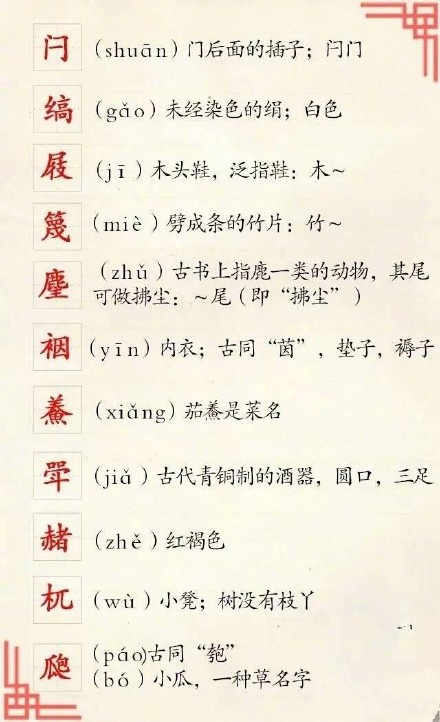 闩 (shuān) 门后面的插子；闩门
缟 (gǎo) 未经染色的绢；白色
屐 (jī) 木头鞋，泛指鞋：木～
篾 (miè) 劈成条的竹片：竹～
麈 (zhǔ) 古书上指鹿一类的动物，其尾
可做拂尘：～尾（即“拂尘”）
裀 (yīn) 内衣；古同“茵”，垫子，褥子
鲞 (xiǎng) 茄鲞是菜名
斝 (jiǎ) 古代青铜制的酒器，圆口，三足
赭 (zhě) 红褐色
杌 (wù) 小凳；树没有枝丫
瓟 (páo) 古同“匏”
(bó) 小瓜，一种草名字